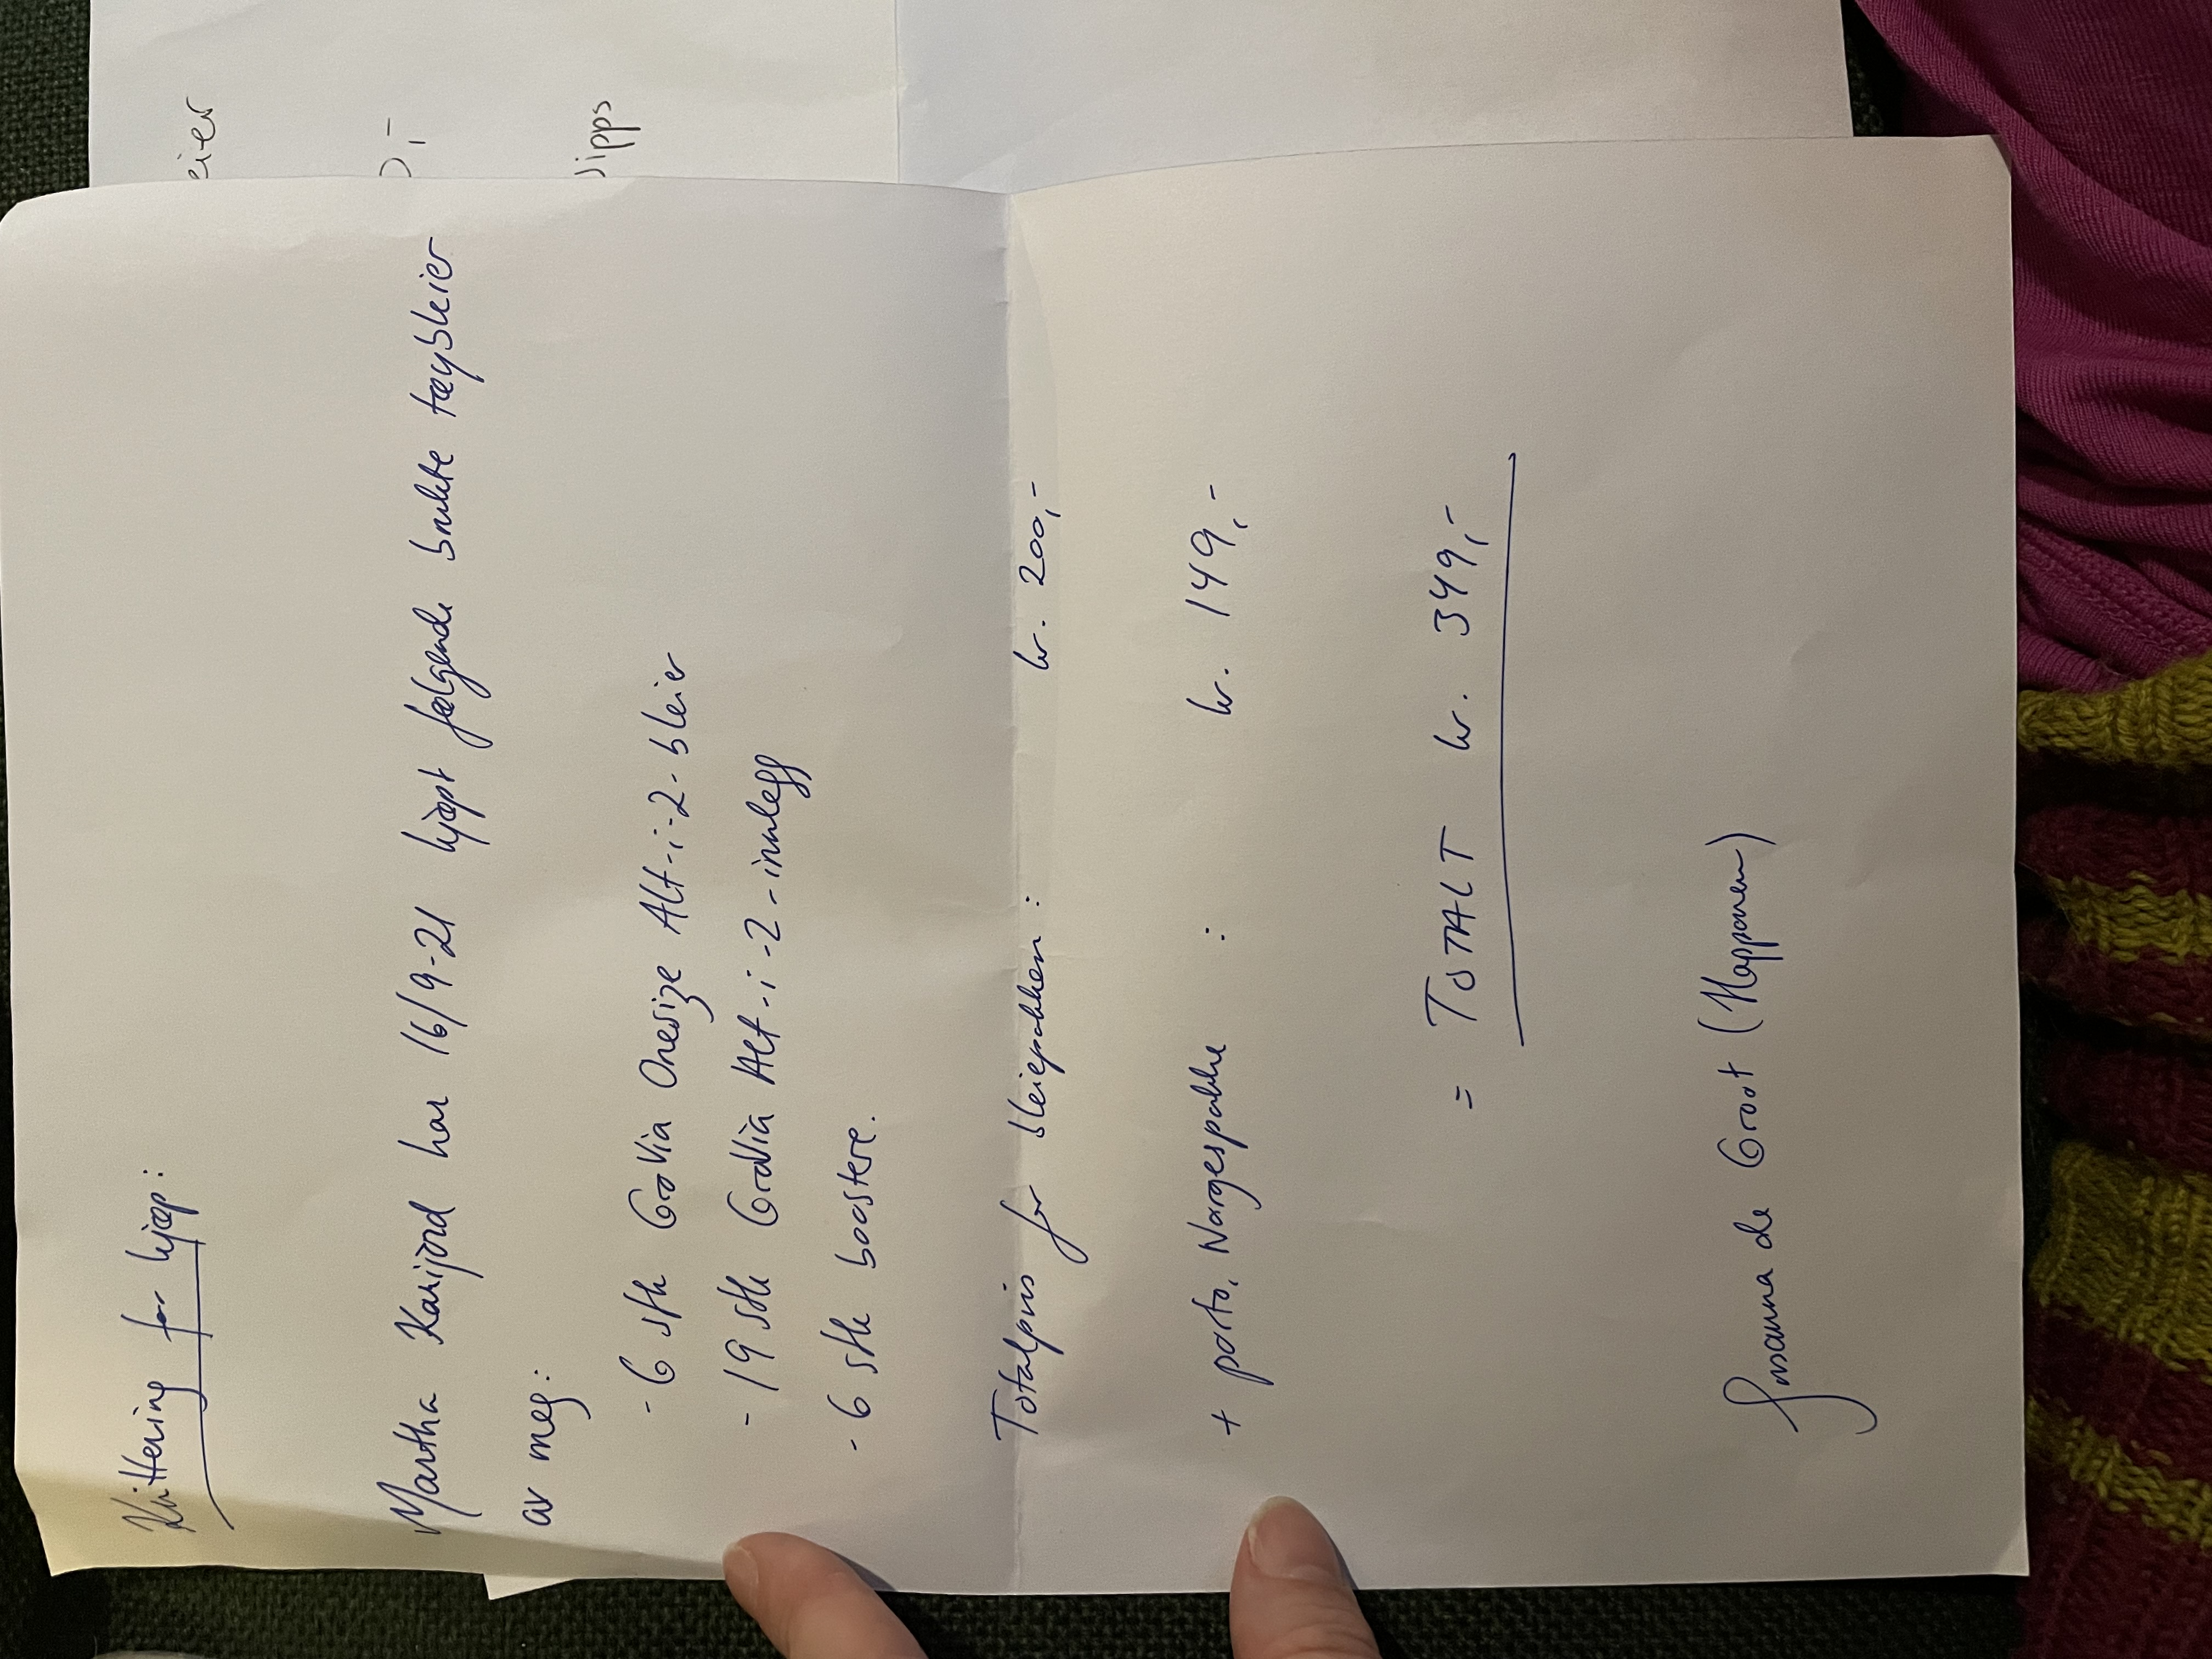 Kvittering for kjøp:
Martha Karijord har 16/9-21 kjøpt følgende brukte tøybleier
av meg:
- 6 stk GroVia Onesize Alt-i-2-bleier
- 19 stk GroVia Alt-i-2-innlegg
- 6 stk boostere.
Totalpris for bleiepakken: kr. 200,-
+ porto, Norgespakke : kr. 149,-
= TOTALT kr. 349,-
Susanna de Groot (Happonen)
eier
,-
ipps